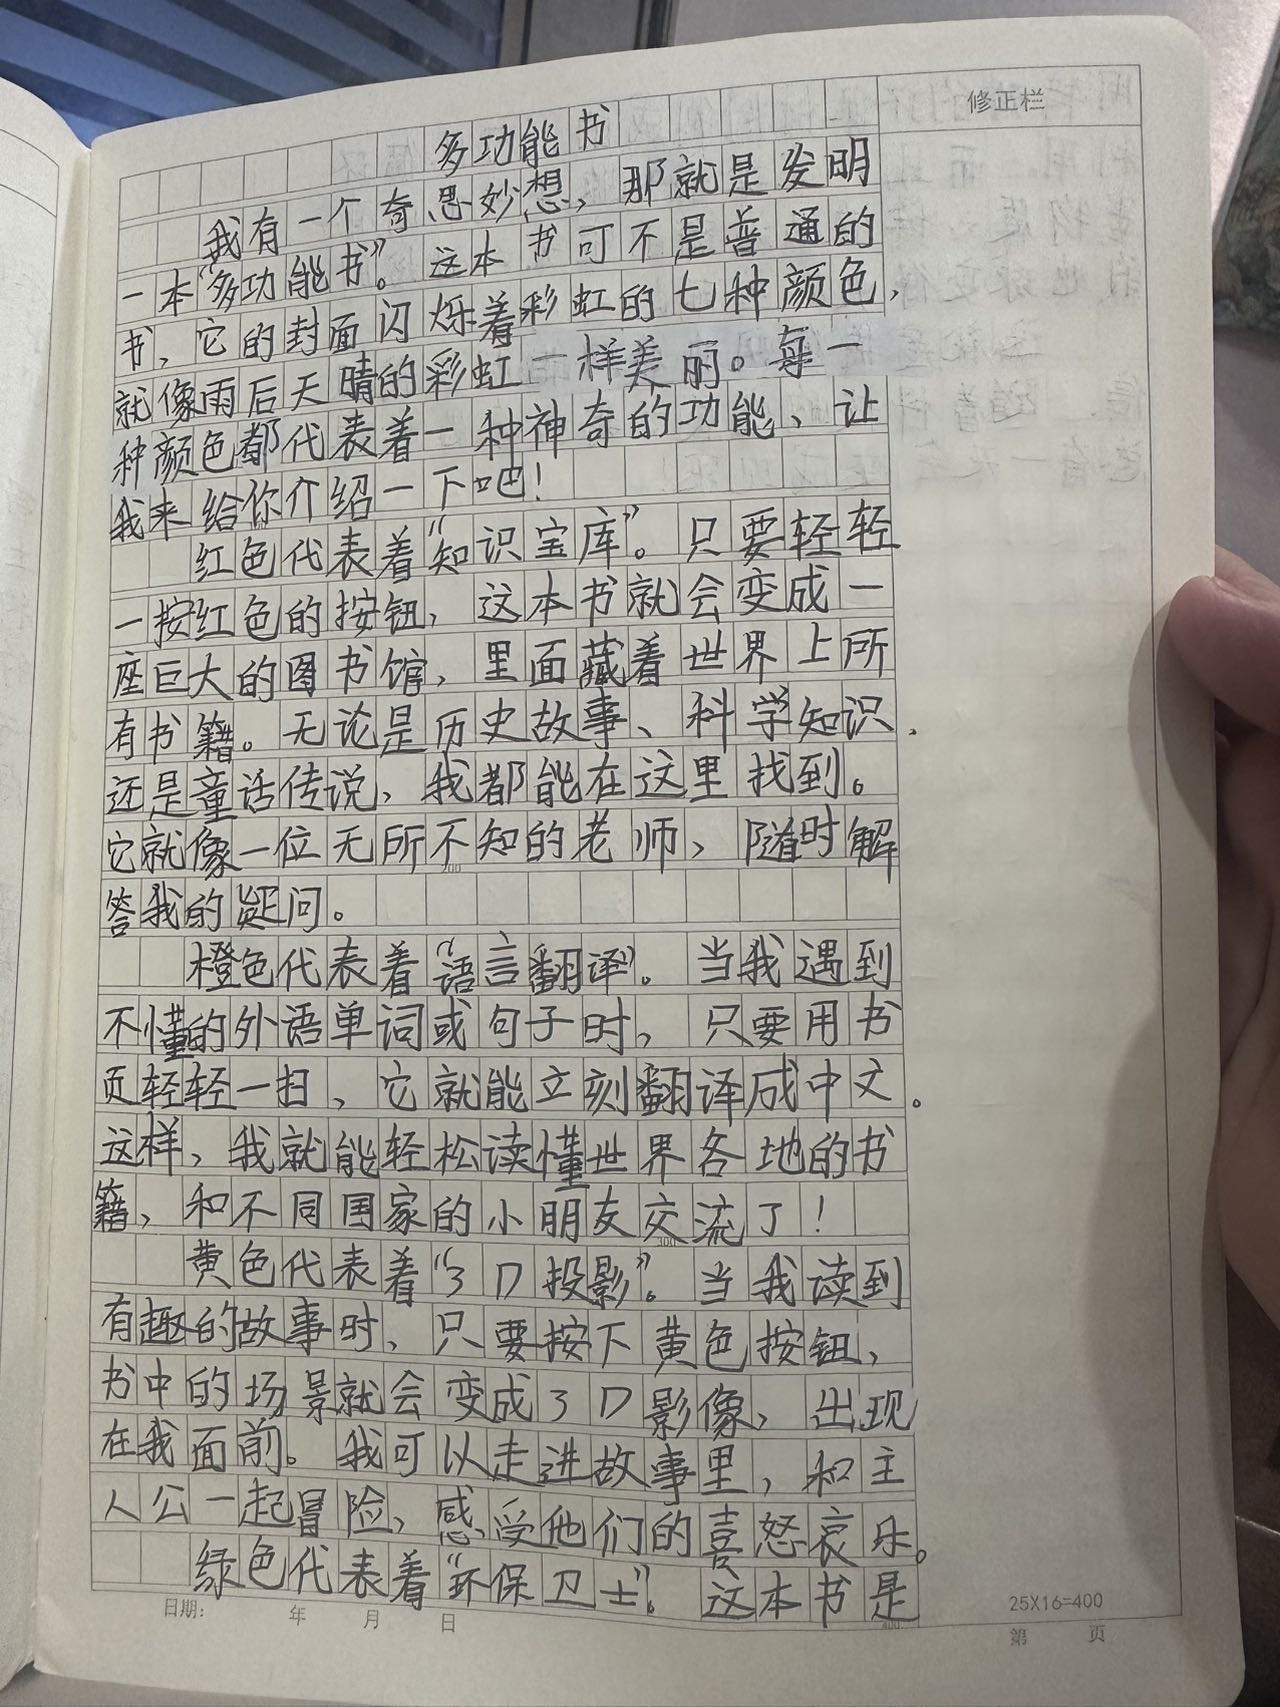 修正栏
多功能书
我有一个奇思妙想，那就是发明
一本“多功能书”。这本书可不是普通的
书，它的封面闪烁着彩虹的七种颜色，
就像雨后天晴的彩虹一样美丽。每一
种颜色都代表着一种神奇的功能、让
我来给你介绍一下吧！
红色代表着“知识宝库”。只要轻轻
一按红色的按钮，这本书就会变成一
座巨大的图书馆，里面藏着世界上所
有书籍。无论是历史故事、科学知识，
还是童话传说，我都能在这里找到。
它就像一位无所不知的老师，随时解
答我的疑问。
橙色代表着“语言翻译”。当我遇到
不懂的外语单词或句子时，只要用书
页轻轻一扫，它就能立刻翻译成中文。
这样，我就能轻松读懂世界各地的书
籍，和不同国家的小朋友交流了！
黄色代表着“3D投影”。当我读到
有趣的故事时，只要按下黄色按钮，
书中的场景就会变成3D影像，出现
在我面前。我可以走进故事里，和主
人公一起冒险，感受他们的喜怒哀乐。
绿色代表着“环保卫士”。这本书是
日期： 年 月 日
25X16=400
第 页